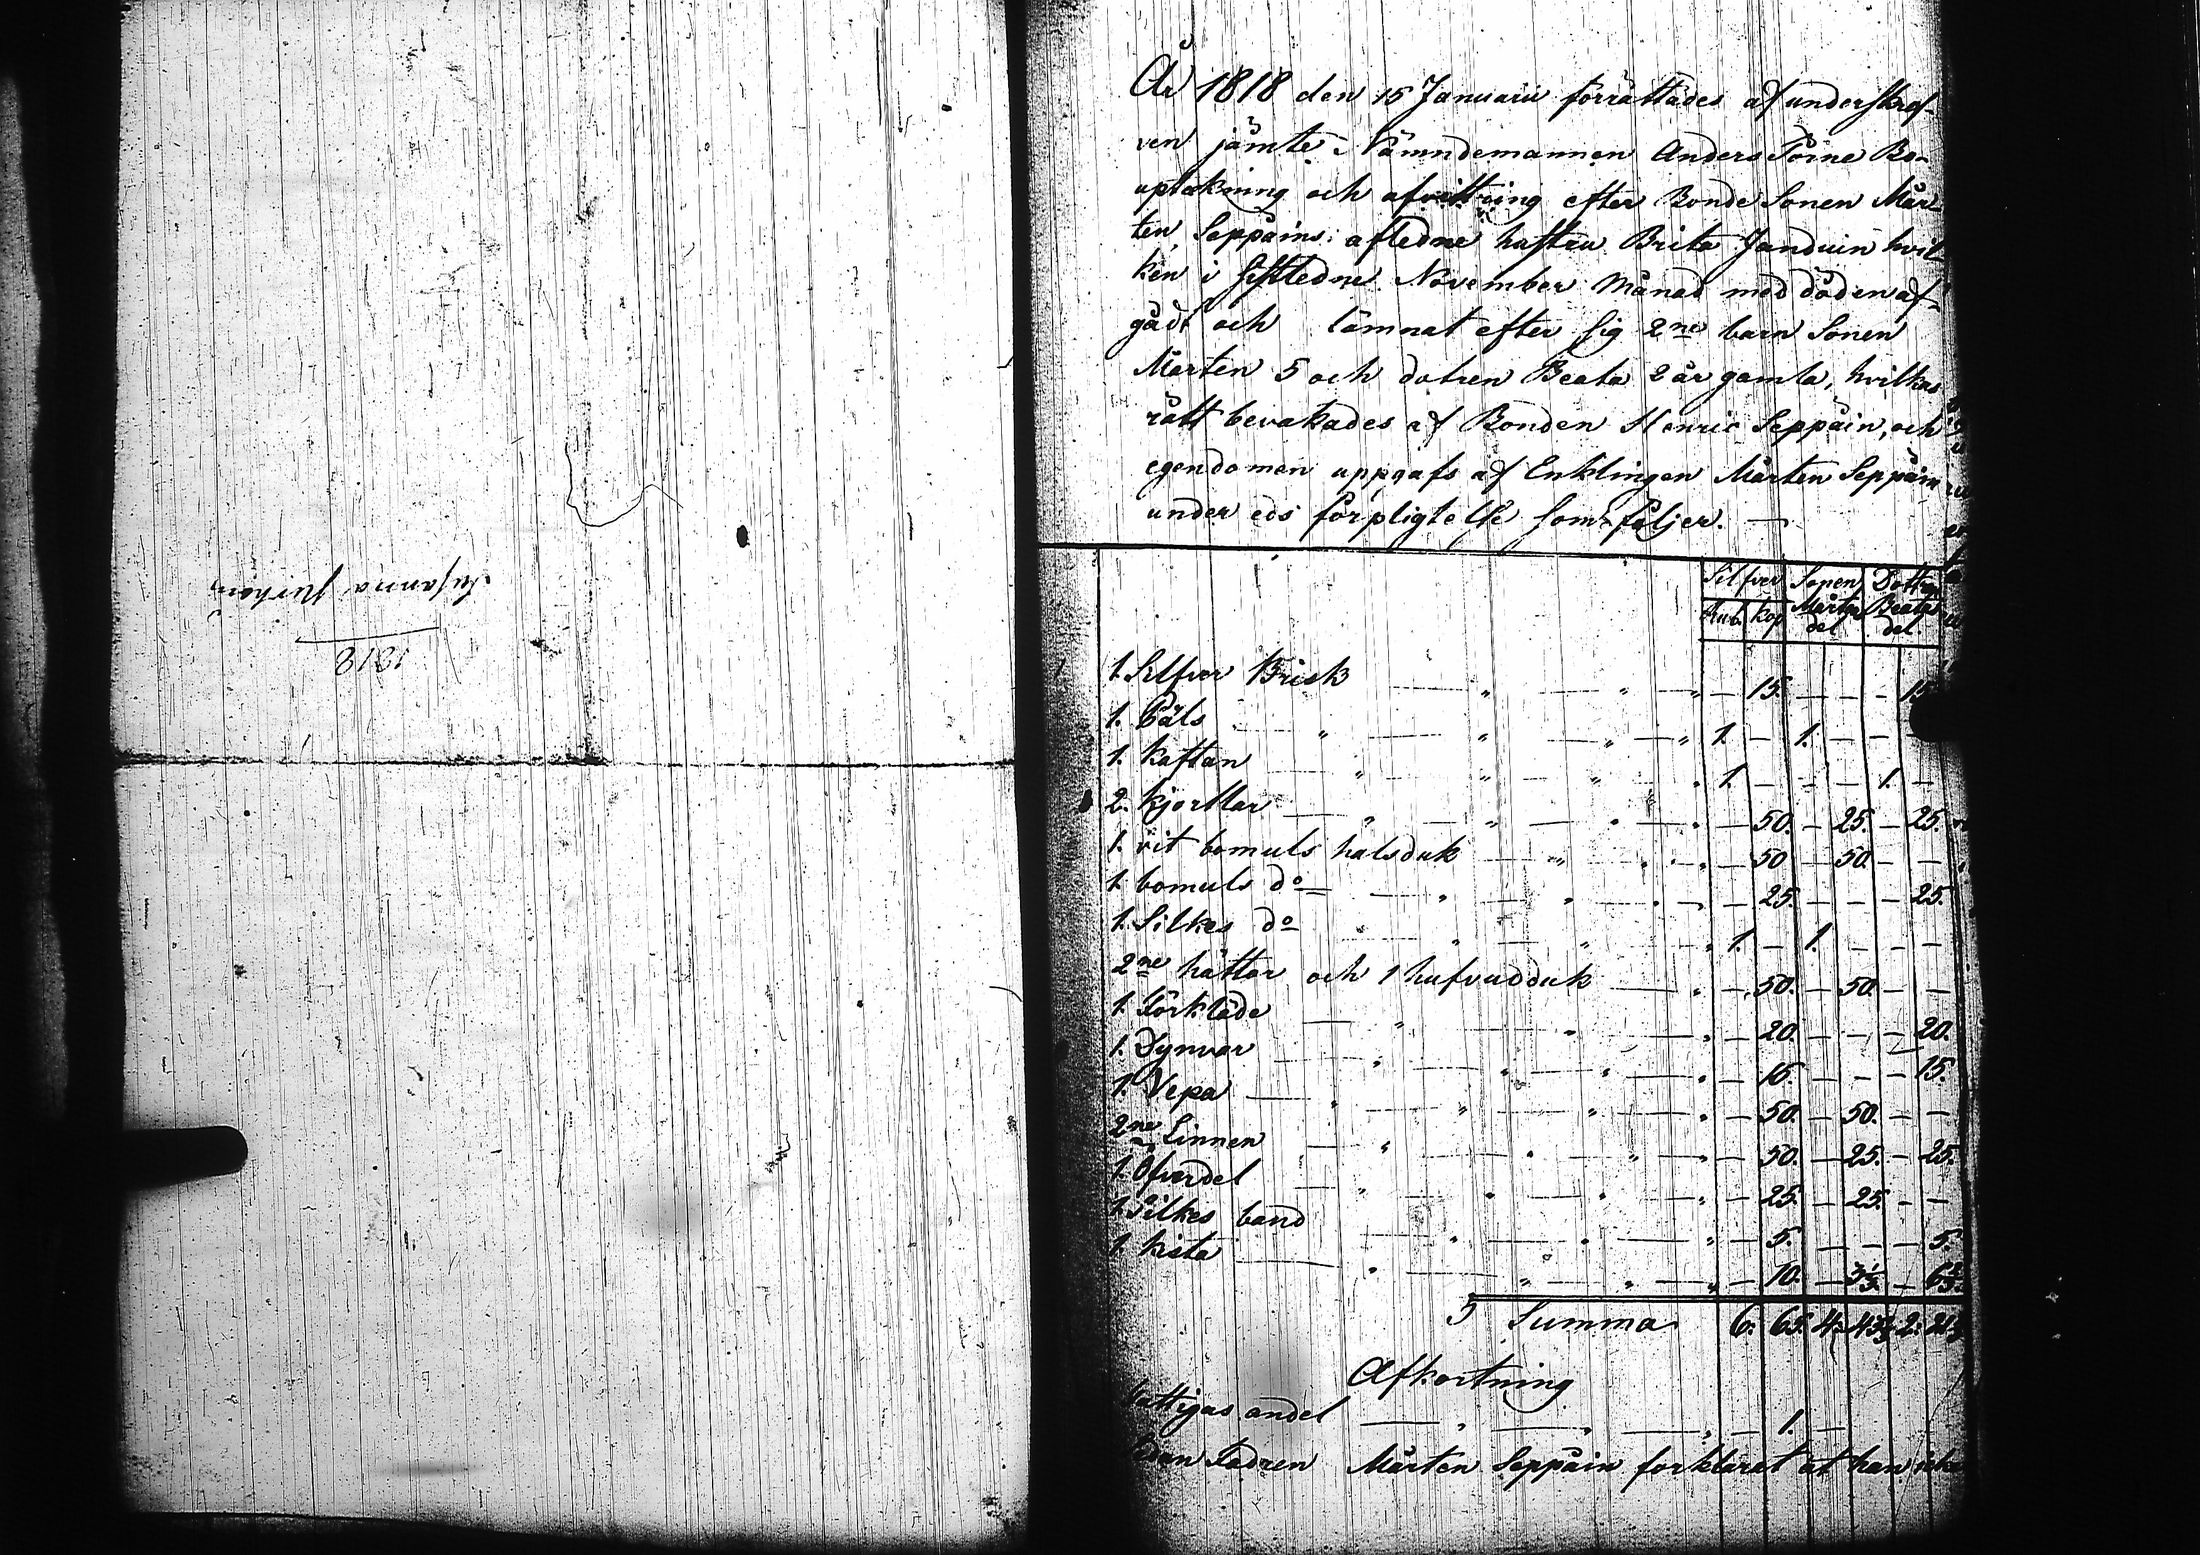 Susanna
1818
År 1818 den 15 Januarii förrättades af underskref-
ven jämte Nämndemannen Anders Törne Bo-
uptekning och afvittring efter Bonde Sonen Mår-
ten Seppäins afledne hustru Brita Janduin hvil
ken i sistledne November Månad med döden af-
gådt och lämnat efter sig 2ne barn Sonen
Mårten 5 och dotren Beata 2 år gamla, hvilkas
rätt bevakades af Bonden Henric Seppäin, och
egendomen uppgafs af Enklingen Mårten Seppäin
under eds förpligtelse som följer. —
Silfver Sonen Dottren
Mårten Beatas
Rub. kop del del.
1. Silfver Brisk — 15. — — — 15.
1. Päls 1. — 1. — —
1. Kaftan 1. — — — 1. —
2. kjortlar — 50. — 25. — 25.
1. vit bomuls halsduk — 50 — 50. — —
1. bomuls do — 25. — — — 25.
1. Silkes do 1. — 1. — — —
2ne hättor och 1 hufvudduk — 50. — 50. — —
1. Förkläde — 20. — — — 20.
1. Dynvar — 15. — — — 15.
1. Vepa — 50. — 50. — —
2ne Linnen — 50. — 25. — 25.
1. Öfverdel — 25. — 25. — —
1. Silkes band — 5. — — — 5.
1. kista — 10. — 3 1/3. — 6 2/3.
Summa 6. 65. 4.
Afkortning
andel — 1. —
Fadren Mårten Seppäin forklarat at han icke